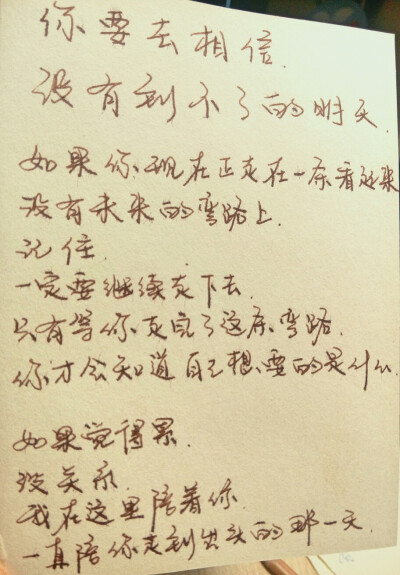 你要去相信.
没有到不了的明天.
如果你现在正走在一条看起来
没有未来的弯路上.
记住.
一定要继续走下去.
只有等你走完了这条弯路.
你才会知道自己想要的是什么.
如果觉得累.
没关系.
我在这里陪着你.
一直陪你走到出头的那一天.